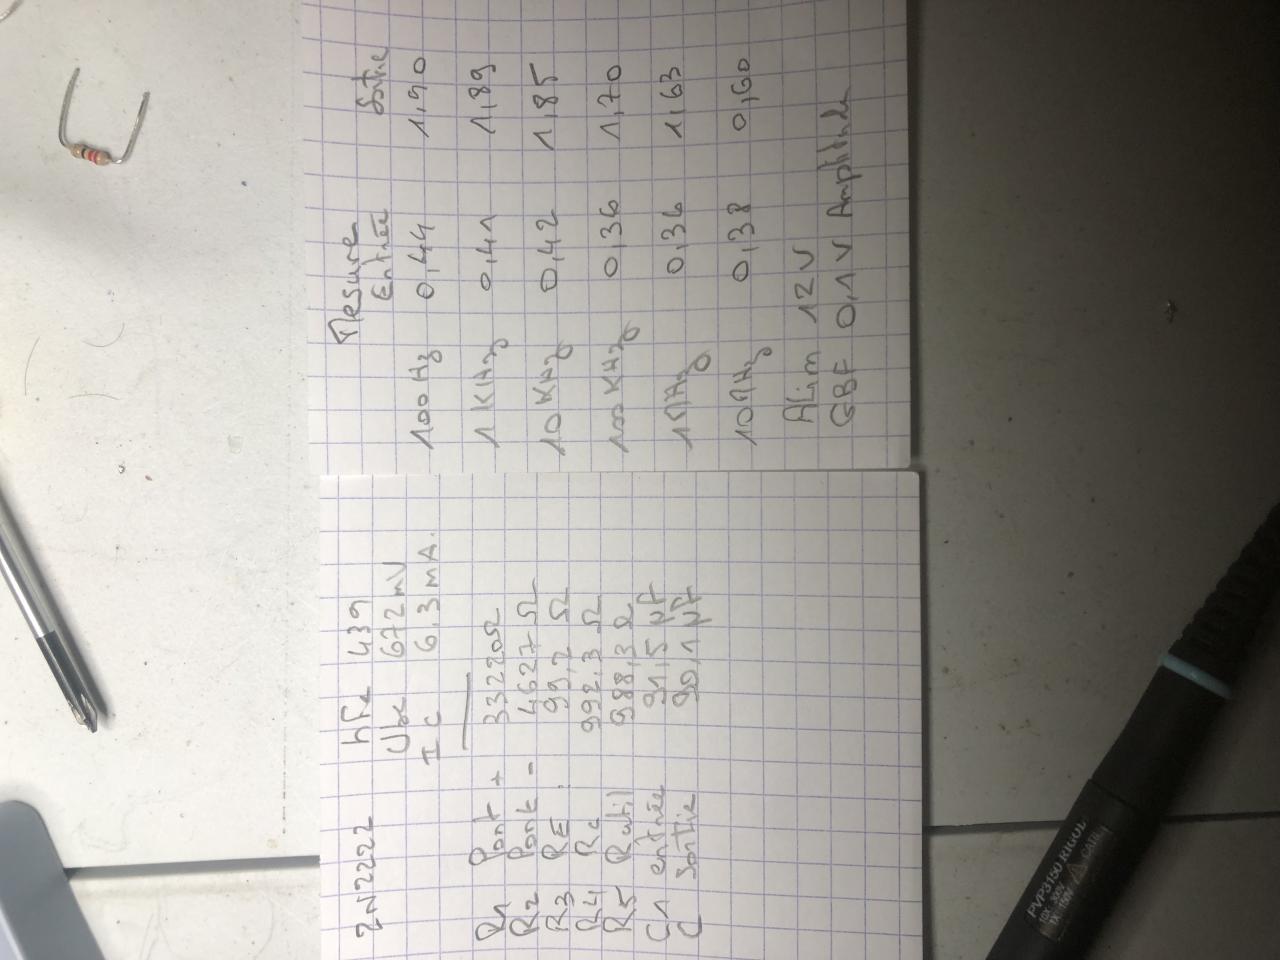 2N2222 hFe 439
Ube 672 mV
Ic 6,3 mA.
R1 Pont + 33220Ω
R2 Pont - 4627 Ω
R3 RE. 99,2 Ω
R4 Rc 992,3 Ω
R5 Rutil 988,3 Ω
C1 entrée 91,5 µF
C Sortie 90,1 µF
Mesure
Entrée Sortie
100 Hz 0,44 1,90
1 KHz 0,41 1,89
10 KHz 0,42 1,85
100 KHz 0,36 1,70
1 MHz 0,36 1,63
10 MHz 0,38 0,60
ALim 12V
GBF 0,1V Amplitude
PVP3150 RIGOL
10X: 300V
1X: 150V
CAT II